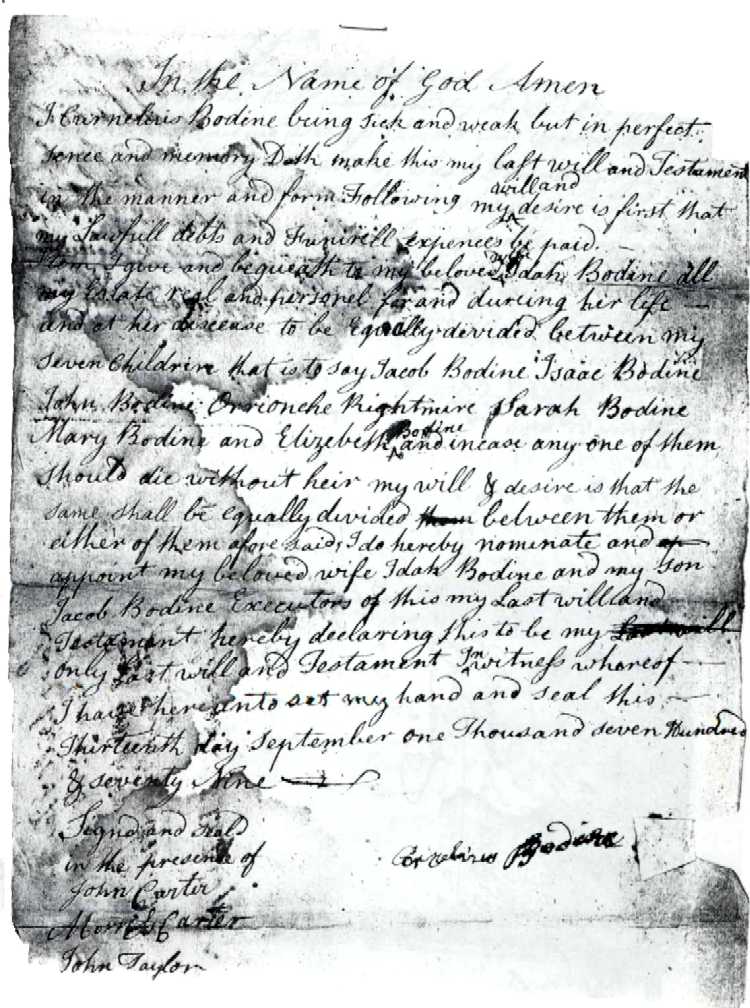 In the Name of God Amen
I Curnelius Bodine being sick and weak but in perfect
sence and memory Doth make this my last will and Testament
in the manner and form Following my will and desire is first that
my Lawfull debts and Funirell expences be paid.
Item I give and bequeath to my beloved wife Idah Bodine all
my Estate real and personel for and dureing her life
and at her descease to be Equally divided between my
seven Childrin that is to say Jacob Bodine Isaac Bodine
John Bodine Orrionche Rightmire Sarah Bodine
Mary Bodine and Elizebeth Bodine and incase any one of them
should die without heir my will & desire is that the
same shall be equally divided them between them or
either of them afore said; I do hereby nominate and ap
appoint my beloved wife Idah Bodine and my son
Jacob Bodine Executors of this my Last will and
Testament hereby declaring this to be my Last will
only Last will and Testament In witness whareof
I have hereunto set my hand and seal this
Thirteenth day September one Thousand seven Hundred
& seventy Nine
Signd and seald
in the presence of
Cornelius Bodine
John Carter
Morris Carter
John Taylor